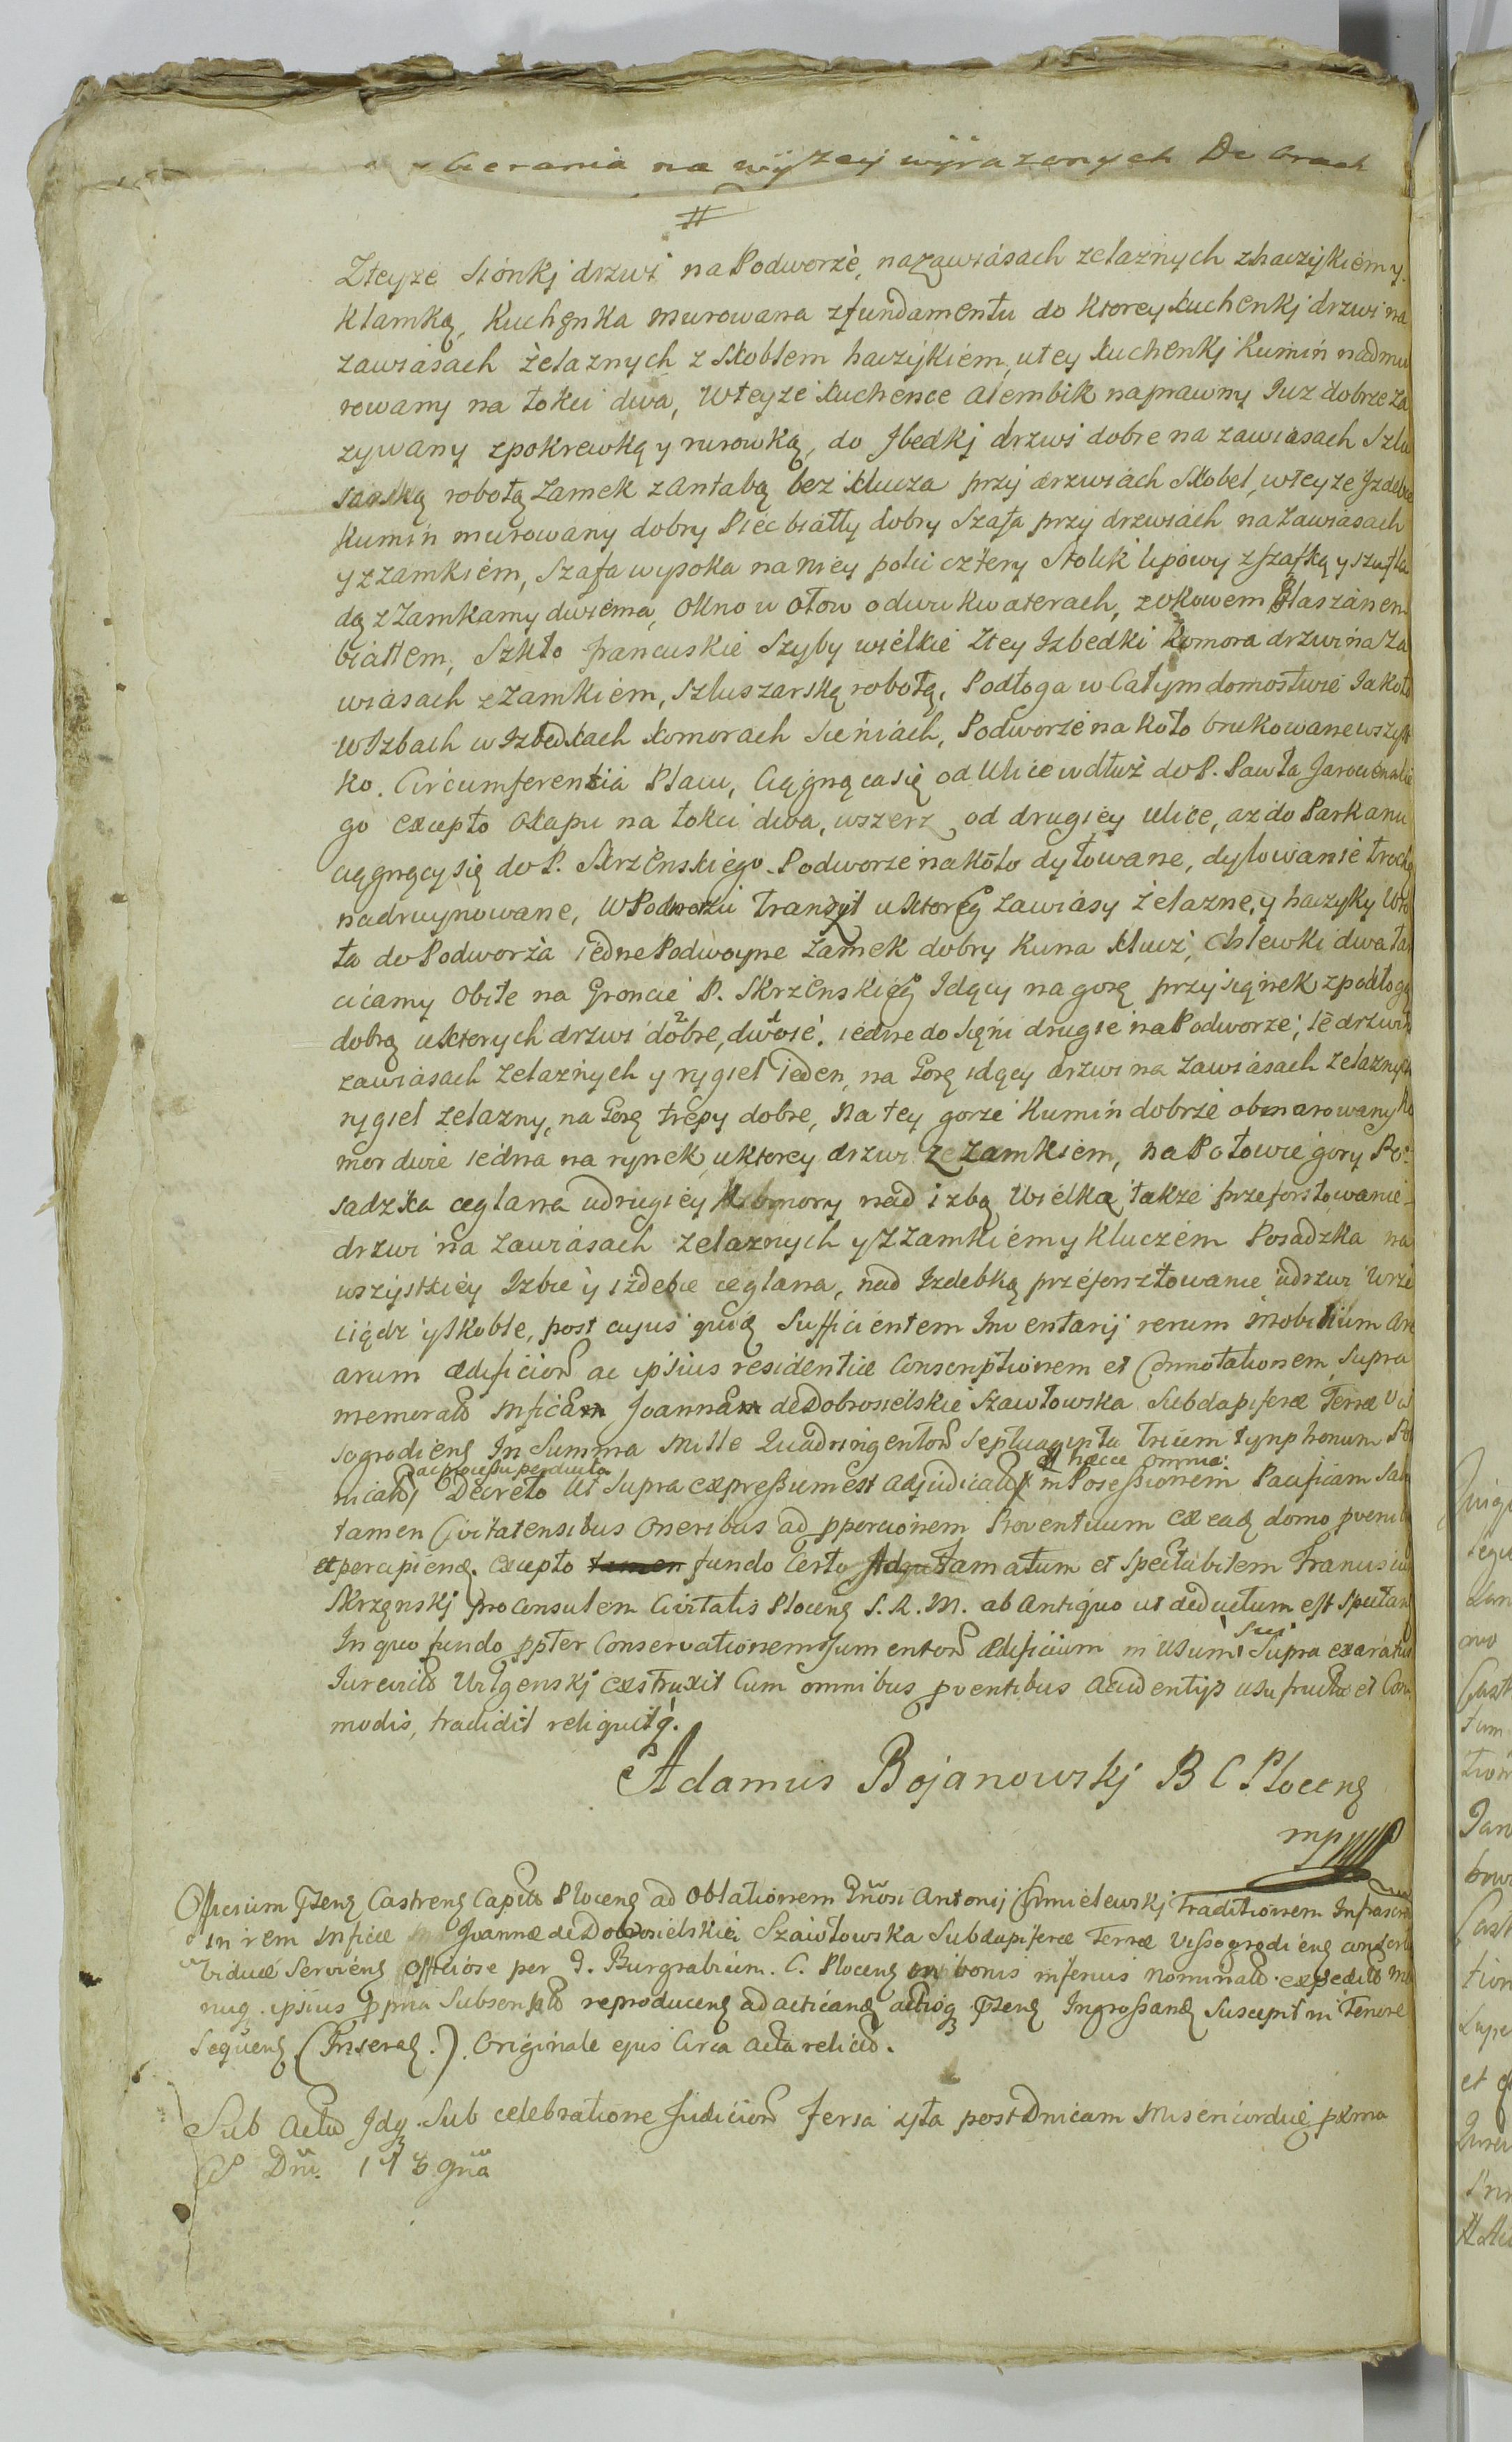 bierania na wyzey wyrazonych Dobrach
#
Zteyze Sionkj drzwi na Podworzè, nazawiásach zelaznych zhaczykiém y
Klamką, Kuchęnka murowana zfundamentu do Ktorey Kuchenkj drzwi na
zawiasach żelaznych z Skoblem haczykiem, utey Kuchenkj Kumin nadmu
rowany na łokci dwa, Wteyze Kuchence Alembik naprawny Juz dobrze za
zywany zpokrewką y rurowką, do Jbedkj drzwi dobre na zawiasach Szlu
sarską robotą Zamek zAntabą bez klucza przy drzwiach Skobel, wteyze Jzdebce
Kumin murowany dobry Piec biały dobry Szafa przy drzwiach na zawiasach
y zzamkiem, Szafa wysoka na niey polic cztery Stolik lipowy zszafką y szufla
dą zZamkamy dwiema, Okno w ołow odwu kwaterach, zokowem Blaszanem
białem, Szkło francuskie Szyby wielkie Ztey Izbedki Komora drzwi na za
wiasach zZamkiem, Szluszarską robotą, Podłoga w Całym domostwie Jako to
wIzbach w Izbedkach Komorach Sieniach, Podworze na koło brukowane wszyst
ko. Circumferentia Placu, Ciągnącasię od Ulice wdłuż do P. Pawła
go excepto Okapu na łokci dwa, wszerz od drugiey ulice, az do Parkanu
ciągnącysię do P. Skrzenskiego. Podworze nakoło dylowane, dylowanie trochę
nadruynowane, wPodworzu tranzyt uktoreg zawiasy żelazne, y haczyky Wro
ta do Podworza iedne Podwoyne zamek dobry Kuna Klucz, Chlewki dwa tar
cicamy Obite na Groncie P. Skrzenskieg Idący na gorę przysiąnek zpodłogą
dobrą uktorych drzwi dobre, dwoie iedne do Sięni drugie na Podworze,
zawiasach żelaznych y rygiel ieden, na Gorę idący drzwi na zawiasach zelaznych
rygiel zelazny, na Gorę trepy dobre, Na tey gorze Kumin dobrze obmurowany Ko
mor dwie iedna na rynek uktorey drzwi zeZamkiem, na Połowie gory Po:
sadzka ceglana udrugiey Komory nad izbą Wielką takze przeforsztowanie
drzwi na zawiasach zelaznych y Zzamkiem y kluczem Posadzka na
wszystkiey Izbie y izdebce ceglana, nad Izdebką przeforsztowanie udrzwi Wrze
ciądz yskoble, post cujus quid Sufficientem Inventarij rerum mobilium are
arum ædificior ac ipsius residentiæ Conscriptionem et Connotationem Supra
memorat Mficam Joannam de Dobrosielskie Szawłowska Subdapiferæ Terræ Vis
sogrodieng In Summa Mille Quadringentor Septuaginta trium tynphonum Po
ac processu perducto hæcce omnia
Decreto Ut Supra expressum est adjudicat in Possessionem Pacificam Salvis
tamen Civitatensibus Oneribus ad pporcionem Proventuum ex ead domo proveni
et percipiend. excepto tamen fundo Certo Famatum et Spectabilem
Skrzęnskj Proconsulem Civitatis Ploceng S. R. M. ab Antiquo ut deductum est Spectan
Sui
In quo fundo ppter Conservationem Jumentor ædificium in usum Supra exaratus
Wilgenskj exstruxit Cum omnibus proventibus accidentijs usufructu et Com
modis, tradidit reliquitq.
Adamus Bojanowskj B C Ploceng
mp
Officium Pseng Castreng Capit Ploceng ad Oblationem Gnosi Antonij Chmielewskj Traditionem Infrascr
in rem Mficæ Joannæ de Dobrosielskiei Szawłowska Subdapiferæ Terræ Vissogrodieng
Viduæ Servieng Officiose per G. Burgrabium. C. Ploceng in bonis inferius nominat expedit ma
nuq. ipsius ppria Subscript reproduceng ad acticand actisq Pseng Ingrossand Suscepit in Tenore
Sequeng (Inserat.). Originale ejus Circa acta relict.
Sub Actu Jdq. Sub celebratione Judicior Feria post Dnicam Misericordiæ pxma
A Dni. 173